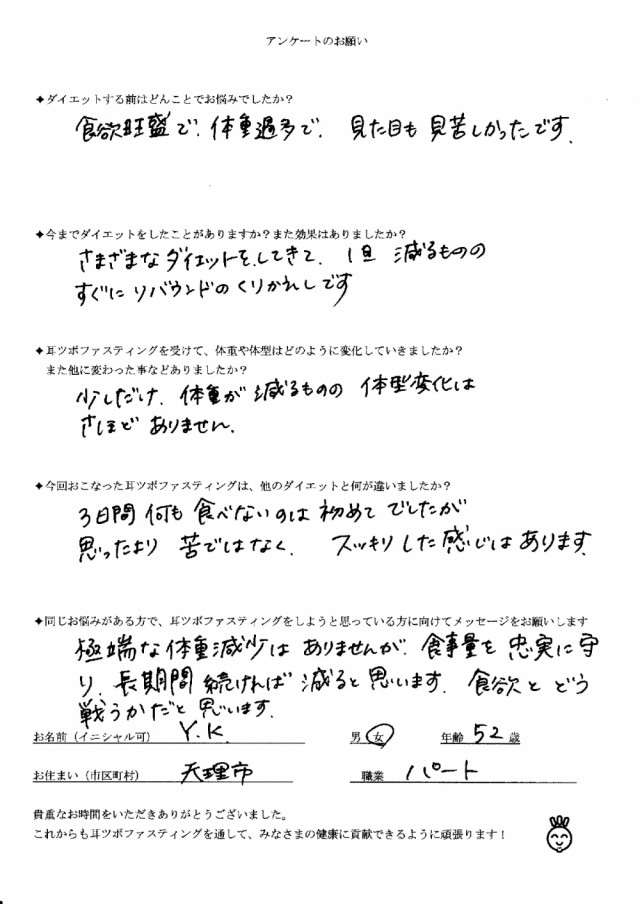 アンケートのお願い
✦ダイエットする前はどんことでお悩みでしたか？
食欲旺盛で、体重過多で、見た目も見苦しかったです。
✦今までダイエットをしたことがありますか？また効果はありましたか？
さまざまなダイエットをしてきて、1旦減るものの
すぐにリバウンドのくりかえしです
✦耳ツボファスティングを受けて、体重や体型はどのように変化していきましたか？
また他に変わった事などありましたか？
少しだけ、体重が減るものの体型変化は
さほどありません。
✦今回おこなった耳ツボファスティングは、他のダイエットと何が違いましたか？
3日間何も食べないのは初めてでしたが
思ったより苦ではなく、スッキリした感じはあります。
✦同じお悩みがある方で、耳ツボファスティングをしようと思っている方に向けてメッセージをお願いします
極端な体重減少はありませんが、食事量を忠実に守
り、長期間続ければ減ると思います。食欲とどう
戦うかだと思います。
お名前（イニシャル可） Y.K. 男・女 年齢 52 歳
お住まい（市区町村） 天理市 職業 パート
貴重なお時間をいただきありがとうございました。
これからも耳ツボファスティングを通して、みなさまの健康に貢献できるように頑張ります！